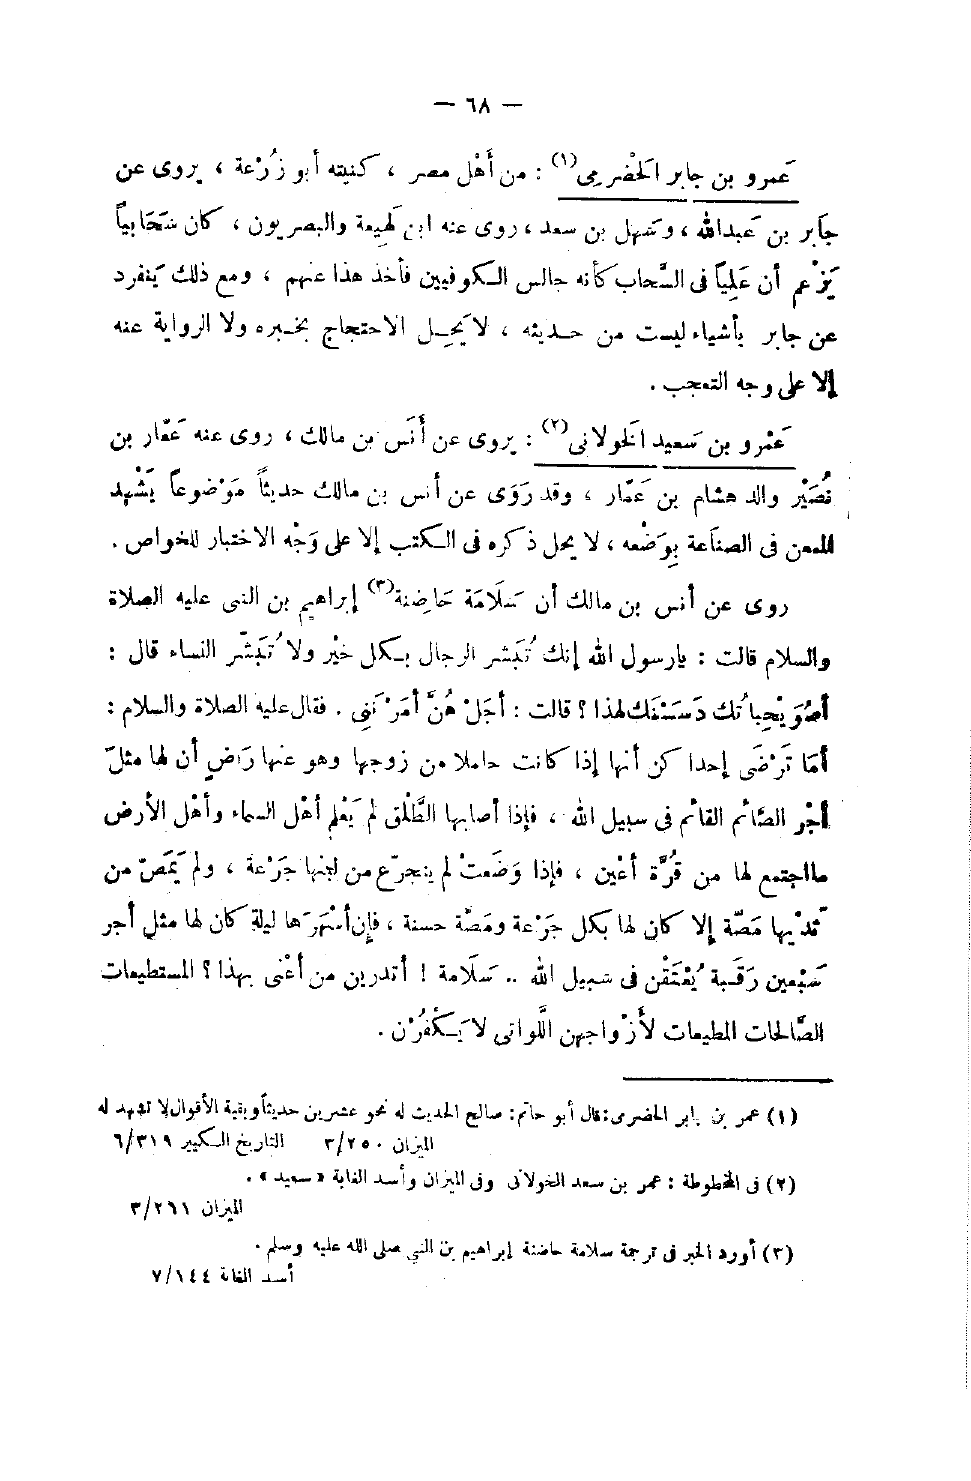 — ٦٨ —
عَمرو بن جابر الحَضْرمِى(١) : من أَهْل مصر ، كنيته أبو زُرْعة ، يروى عن
جَابر بن عَبدالله ، وسَهل بن سعد ، روى عنه ابن لَهِيعة والبصريون ، كان سَحَابياً
يَزْعم أن عَلِياً فى السَّحاب كأنه جالس الكوفيين فأخذ هذا عنهم ، ومع ذلك يَنفرد
عن جابر بأشياء ليست من حديثه ، لا يَحِل الاحتجاج بخبره ولا الرواية عنه
إلا على وجه التعجب .
عَمْرو بن سَعيد الخَولانى(٢) : يروى عن أَنَس بن مالك ، روى عنه عَمَّار بن
نُصَيْر والد هشام بن عَمَّار ، وقد رَوَى عن أنس بن مالك حديثاً مَوْضوعاً يَشْهد
للممعن فى الصنَاعة بِوَضْعه ، لا يحل ذكره فى الكتب إلا على وَجْه الاختبار للخواص .
روى عن أنس بن مالك أن سَلَامَة حَاضِنة(٣) إبراهيم بن النبى عليه الصلاة
والسلام قالت : يارسول الله إنك تُبَشر الرجال بكل خَيْر ولا تُبَشِّر النساء قال :
أصُوَيْحِبَاتُك دَسَسْنَك لهذا ؟ قالت : أجَلْ هُنَّ أَمَرْنَنِى . فقال عليه الصلاة والسلام :
أمَا تَرْضَى إحدا كن أنها إذا كانت حاملا من زوجها وهو عنها رَاضٍ أن لها مثلَ
أجْر الصَّائم القائم فى سبيل الله ، فإذا أصابها الطَّلْق لم يَعْلم أهْل السماء وأهْل الأرض
مااجتمع لها من قُرَّة أعْين ، فإذا وَضَعتْ لم يتجرّع من لبنها جَرْعة ، ولم يَمَصّ من
ثَدْيها مَصّة إلا كان لها بكل جَرْعة ومَصَّة حسنة ، فإن أسْهَرَها ليلة كان لها مثل أجر
سَبْعين رَقَبة يُعْتَقْن فى سَبيل الله .. سَلَامة ! أتدرين من أعْنى بهذا ؟ المستطيعات
الصَّالحات المطيعات لأَزْواجهن اللَّواتى لا يَكْفُرْن .
(١) عمر بن جابر الحضرى : قال أبو حاتم : صالح الحديث له نحو عشرين حديثاً وبقية الأقوال لا تشهد له
الميزان ٣/٢٥٠ التاريخ الكبير ٦/٣١٩
(٢) فى المخطوطة : عمر بن سعد الخولانى وفى الميزان وأسد الغابة « سعيد » .
الميزان ٣/٢٦١
(٣) أورد الخبر فى ترجمة سلامة حاضنة إبراهيم بن النبي صلى الله عليه وسلم .
أسد الغابة ٧/١٤٤